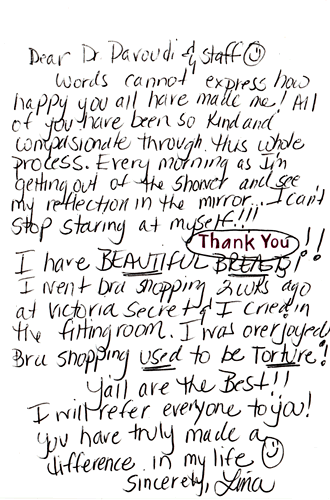 Dear Dr. Davoudi & staff ☺
Words cannot express how
happy you all have made me! All
of you have been so kind and
compassionate through this whole
process. Every morning as I'm
getting out of the shower and see
my reflection in the mirror... I can't
stop staring at myself!!!
Thank You
I have BEAUTIFUL BREASTS!!!
I went bra shopping 2 wks ago
at Victoria Secret & I cried in
the fitting room. I was overjoyed
Bra shopping used to be Torture!
Ya'll are the Best!!
I will refer everyone to you!
You have truly made a
difference in my life ☺
Sincerely, Lina